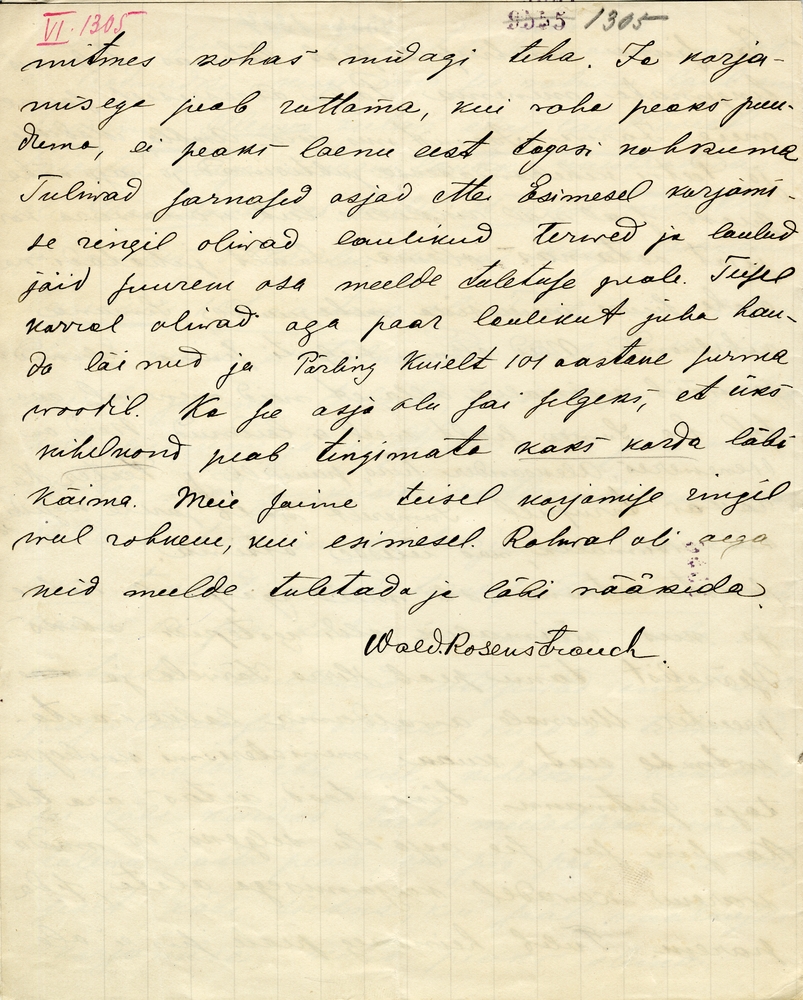 VI. 1305
9555 1305
mitmes kohas midagi teha. Ja korja-
misega peab ruttama, kui raha peaks puu-
duma, ei peaks laenu eest tagasi kohkuma
Tuliwad sarnased asjad ette. Esimesel korjami-
se ringil oliwad laulikud terwed ja laulud
jäid suurem osa meelde tuletuse peale. Teisel
korral oliwad aga paar laulikut juba hau-
da läinud ja Pärling Kuielt 101 aastane surma
woodil. Ka se asja olu sai selgeks, et üks
kihelkond peab tingimata kaks korda läbi
käima. Meie saime teisel korjamise ringil
weel rohkem, kui esimesel. Rahwal oli aega
neid meelde tuletada ja läbi rääkida.
Wold. Rosenstrauch.